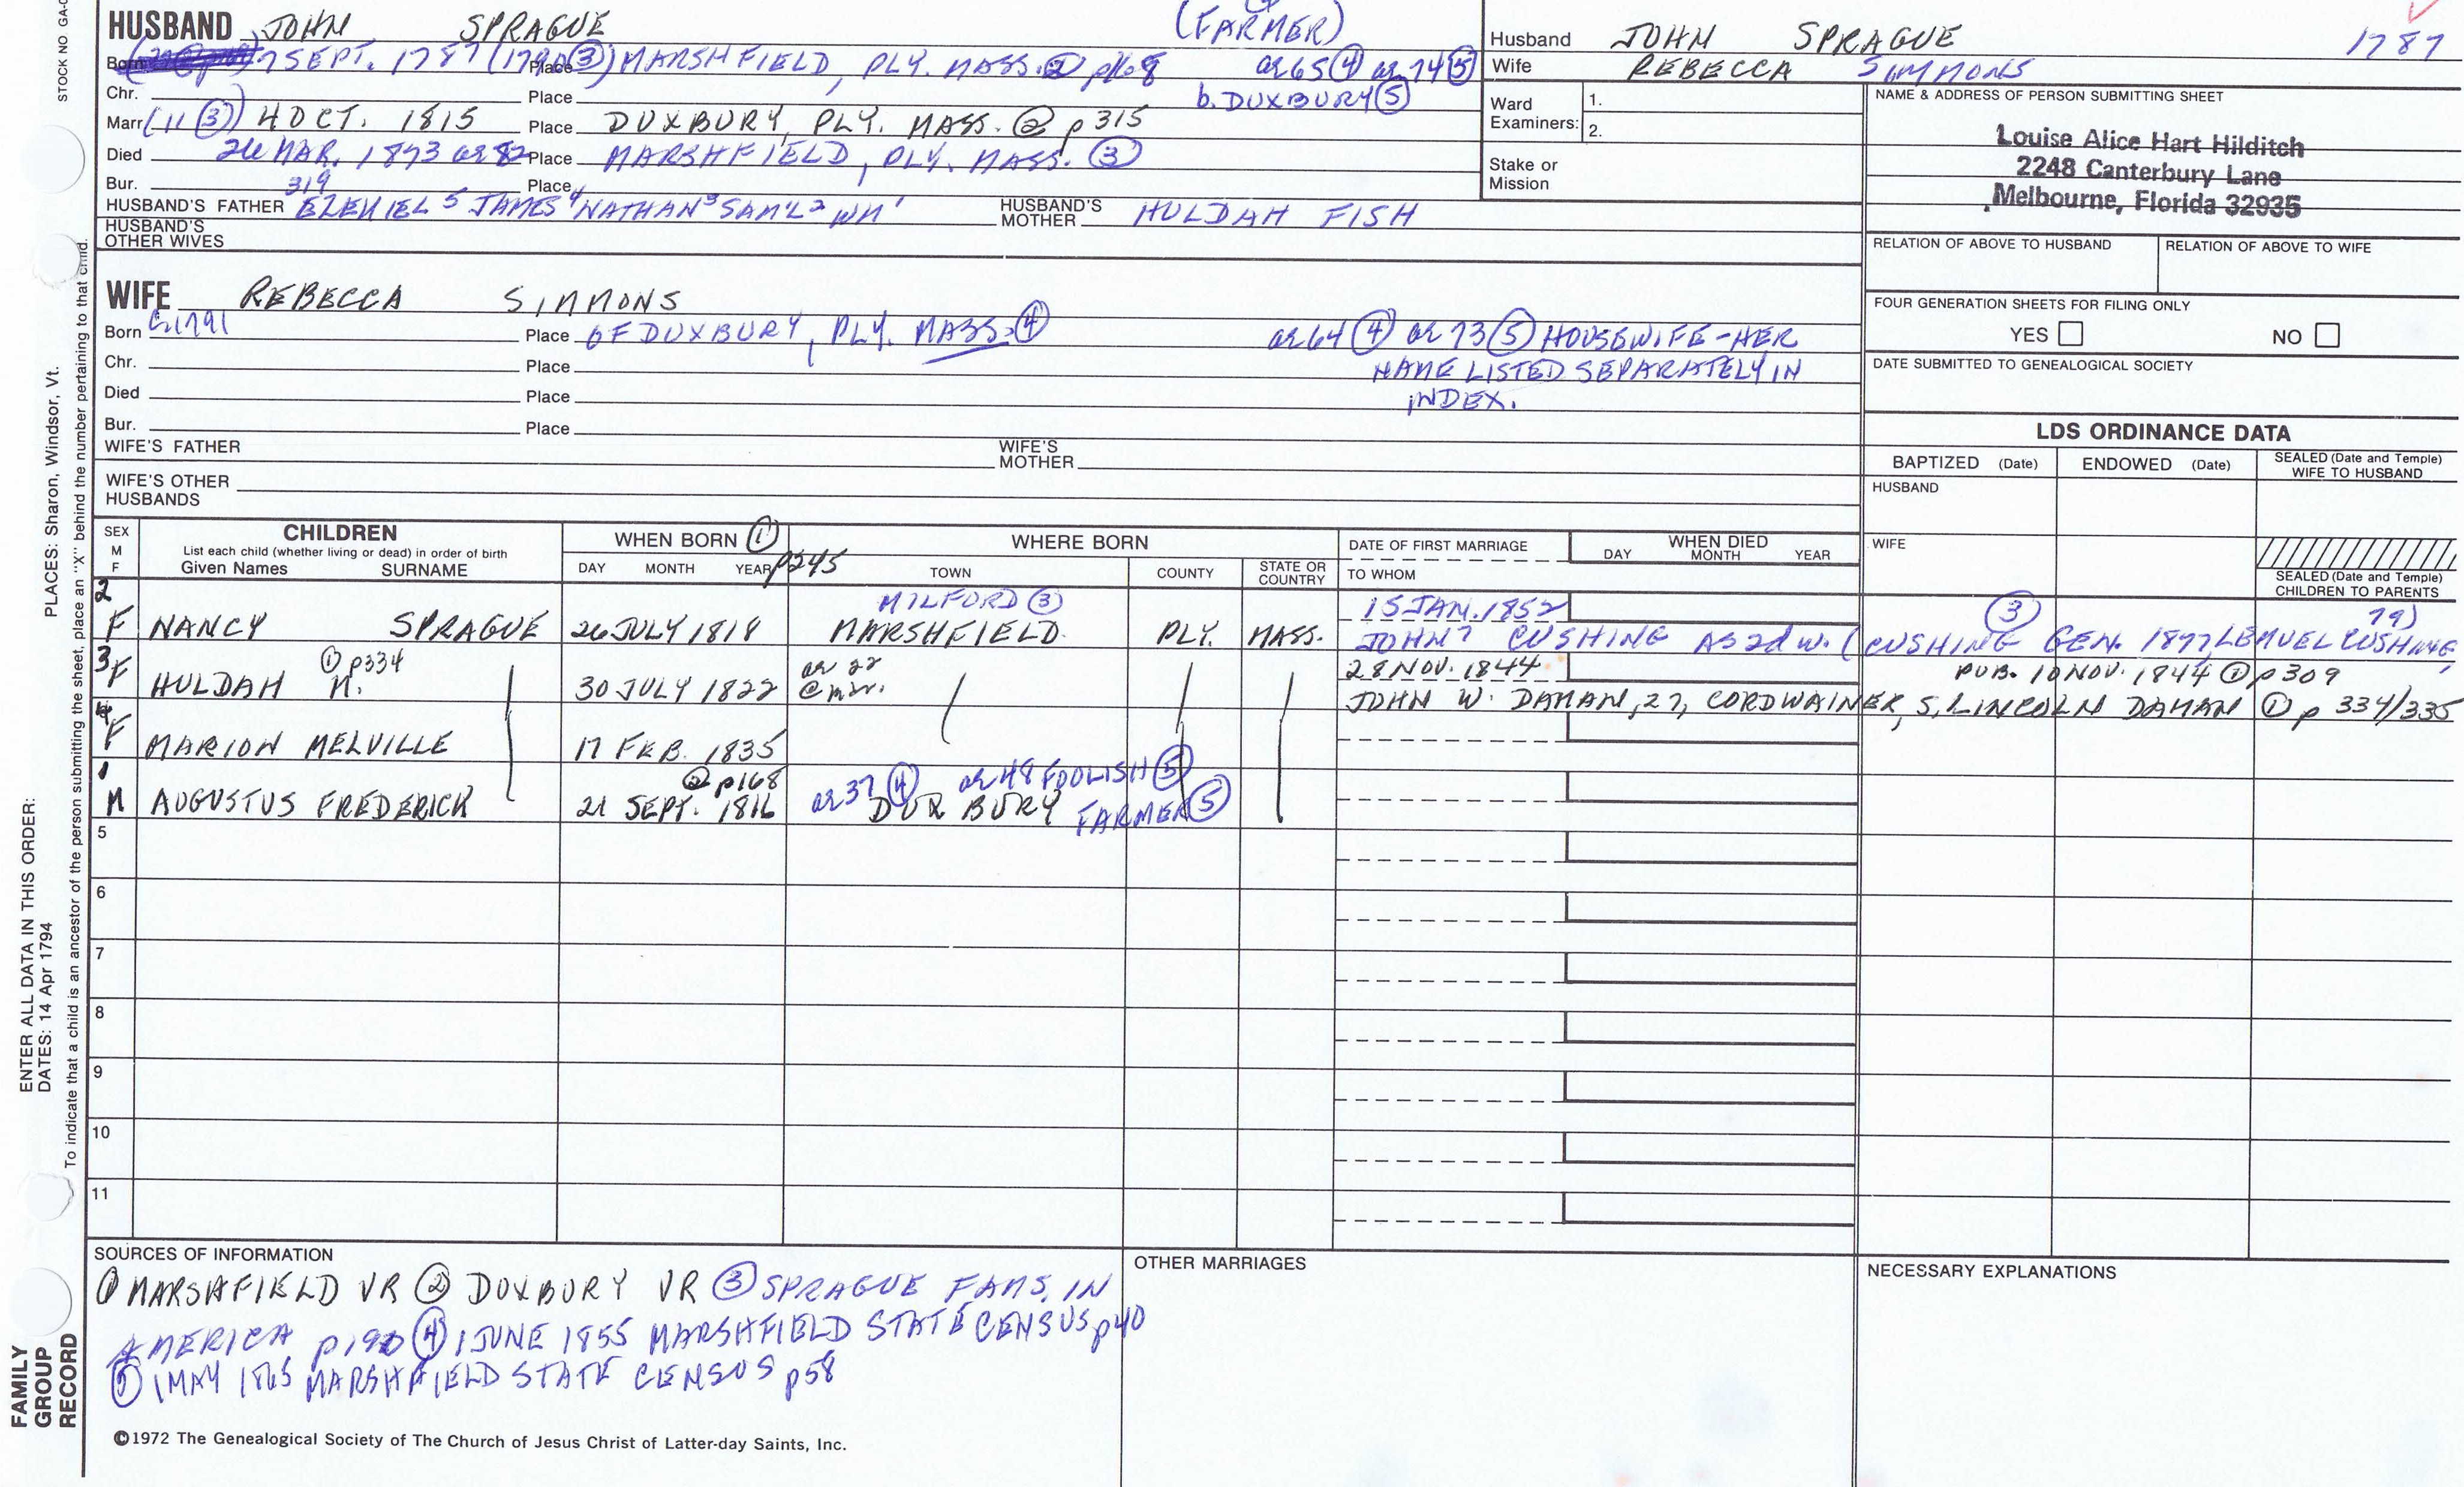 STOCK NO GA-0
(FARMER)
HUSBAND JOHN SPRAGUE
Born 7 SEPT. 1787 (1790 ③) Place MARSHFIELD, PLY. MASS. ② p168 ae 65 ④ ae 74 ⑤
Chr. Place b. DUXBURY ⑤
Marr. (11 ③) 4 OCT. 1815 Place DUXBURY, PLY. MASS. ② p 315
Died 26 MAR. 1873 ae 82 Place MARSHFIELD, PLY. MASS. ③
Bur. 319 Place
HUSBAND'S FATHER EZEKIEL 5 JAMES 4 NATHAN 3 SAM'L 2 WM 1 HUSBAND'S MOTHER HULDAH FISH
HUSBAND'S OTHER WIVES
Husband JOHN SPRAGUE 1787
Wife REBECCA SIMMONS
Ward Examiners: 1.
2.
Stake or Mission
NAME & ADDRESS OF PERSON SUBMITTING SHEET
Louise Alice Hart Hilditch
2248 Canterbury Lane
Melbourne, Florida 32935
RELATION OF ABOVE TO HUSBAND RELATION OF ABOVE TO WIFE
FOUR GENERATION SHEETS FOR FILING ONLY
YES NO
DATE SUBMITTED TO GENEALOGICAL SOCIETY
WIFE REBECCA SIMMONS
Born c1791 Place OF DUXBURY, PLY. MASS. ④ ae 64 ④ ae 73 ⑤ HOUSEWIFE - HER
Chr. Place NAME LISTED SEPARATELY IN
Died Place INDEX.
Bur. Place
WIFE'S FATHER WIFE'S MOTHER
WIFE'S OTHER HUSBANDS
LDS ORDINANCE DATA
BAPTIZED (Date) ENDOWED (Date) SEALED (Date and Temple) WIFE TO HUSBAND
HUSBAND
WIFE
SEALED (Date and Temple) CHILDREN TO PARENTS
SEX M F CHILDREN List each child (whether living or dead) in order of birth Given Names SURNAME
WHEN BORN ① p345 DAY MONTH YEAR
WHERE BORN TOWN COUNTY STATE OR COUNTRY
DATE OF FIRST MARRIAGE TO WHOM
WHEN DIED DAY MONTH YEAR
2 MILFORD ③ 15 JAN. 1852 ③ 79)
F NANCY SPRAGUE 26 JULY 1818 MARSHFIELD PLY. MASS. JOHN 7 CUSHING AS 2d w. (CUSHING GEN. 1877, LEMUEL CUSHING,
3 ① p334 ae 22 28 NOV. 1844 PUB. 10 NOV. 1844 ① p309
F HULDAH M. 30 JULY 1822 @ mar. JOHN W. DAMAN, 27, CORDWAINER, S. LINCOLN DAMAN ① p 334/335
4
F MARION MELVILLE 17 FEB. 1835
1 ② p168 ae 37 ④ ae 48 FOOLISH ⑤
M AUGUSTUS FREDERICK 21 SEPT. 1816 DUXBURY FARMER ⑤
5
6
7
8
9
10
11
SOURCES OF INFORMATION
① MARSHFIELD VR ② DUXBURY VR ③ SPRAGUE FAMS. IN
AMERICA p190 ④ 1 JUNE 1855 MARSHFIELD STATE CENSUS p40
⑤ 1 MAY 1865 MARSHFIELD STATE CENSUS p58
OTHER MARRIAGES
NECESSARY EXPLANATIONS
©1972 The Genealogical Society of The Church of Jesus Christ of Latter-day Saints, Inc.
ENTER ALL DATA IN THIS ORDER:
DATES: 14 Apr 1794 PLACES: Sharon, Windsor, Vt.
To indicate that a child is an ancestor of the person submitting the sheet, place an "X" behind the number pertaining to that child.
FAMILY
GROUP
RECORD